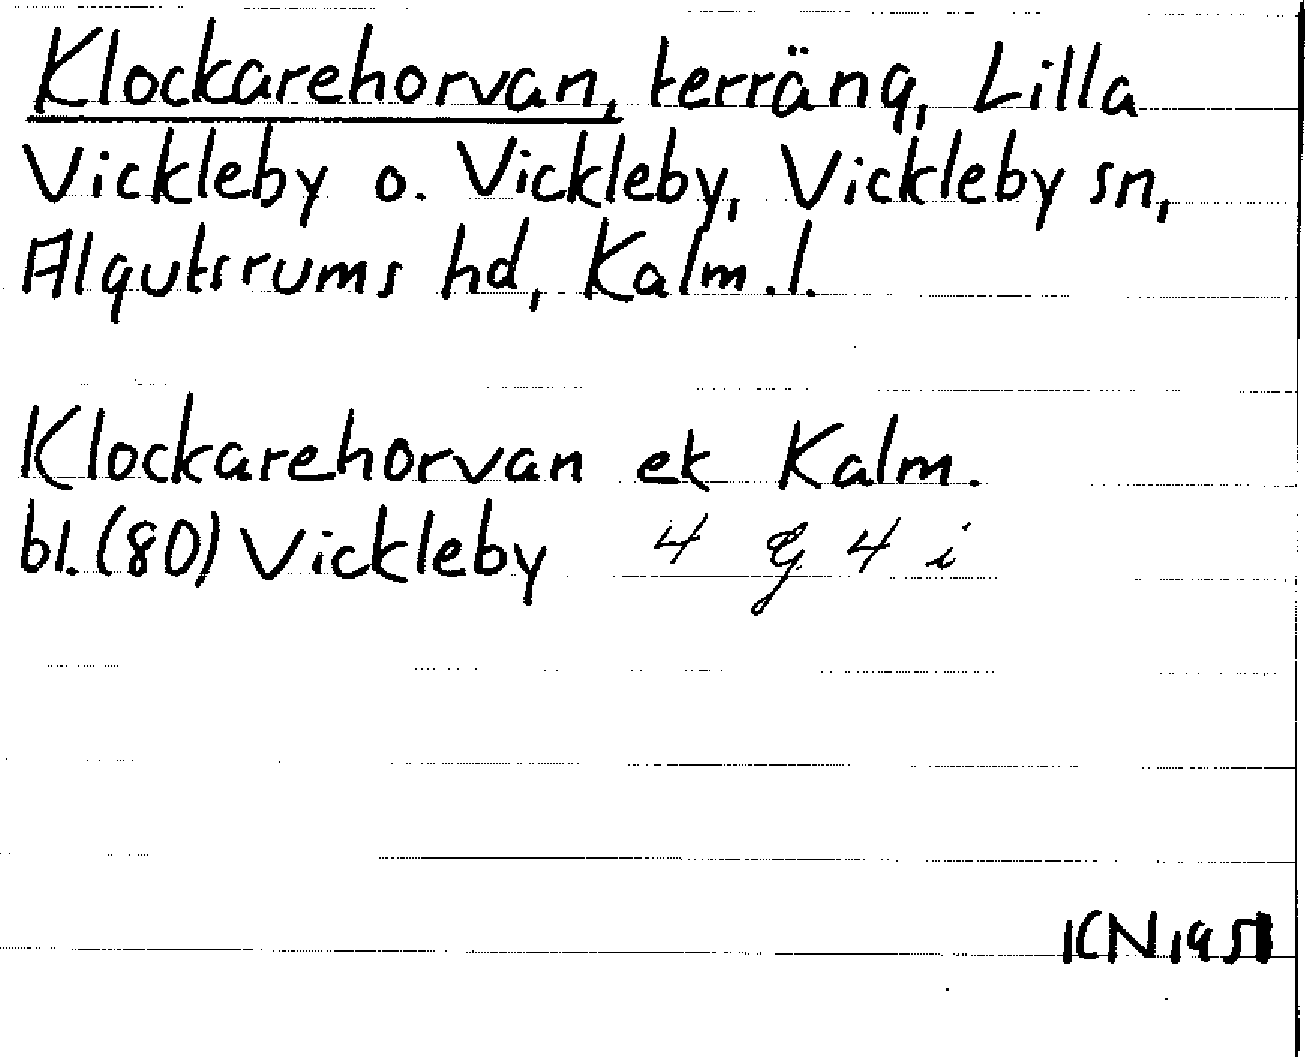 Klockarehorvan, terräng, Lilla
Vickleby o. Vickleby, Vickleby sn,
Algutsrums hd, Kalm.l.
Klockarehorvan ek Kalm.
bl. (80) Vickleby 4 G 4 i
KN 1951